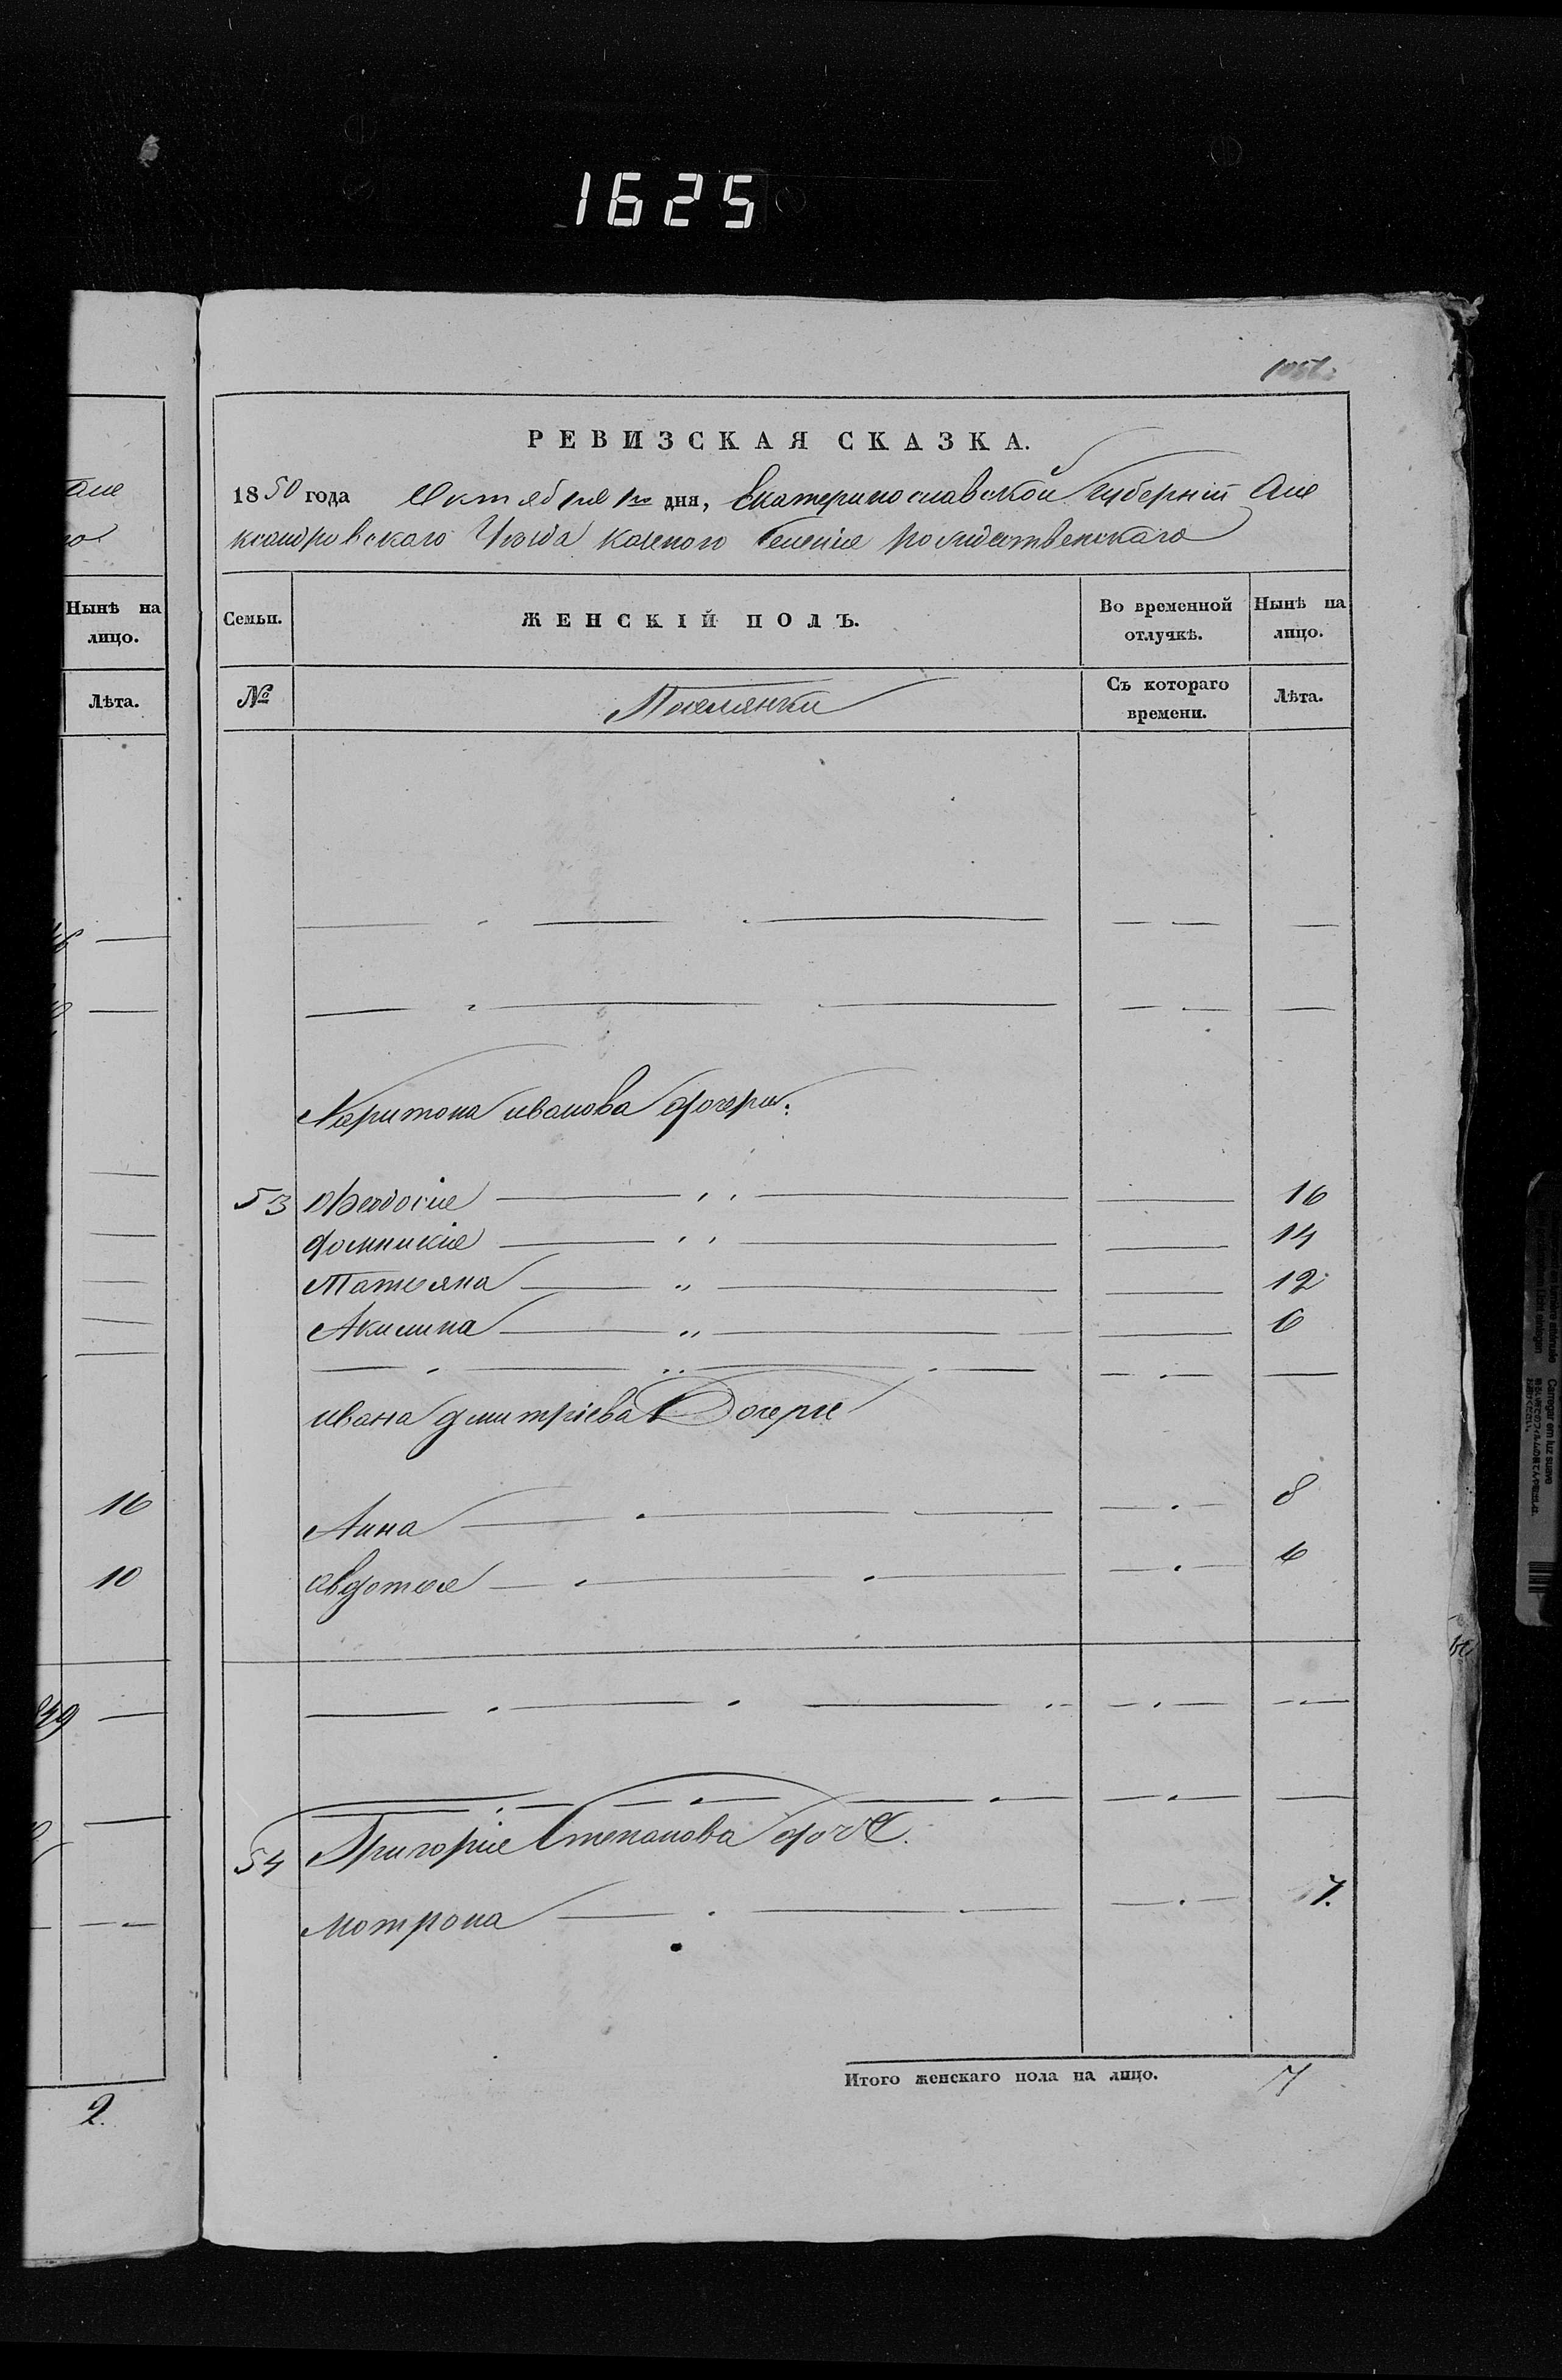 1625
РЕВИЗСКАЯ СКАЗКА.
1850 года Октября 1го дня, Екатеринославской Губерніи Але
ксандровскаго Уезда казеного Селенія Рождественскаго
Семьи.
ЖЕНСКІЙ ПОЛЪ.
Во временной отлучкѣ.
Нынѣ на лицо.
№
Поселянки
Съ котораго времени.
Лѣта.
Харитона иванова дочери:
53 Феодосия 16
домникия 14
Татьяна 12
Акилина 6
ивана дмитріева Дочери
Анна 8
авдотья 6
54 Григорія Степанова дочь.
мотрона 7.
Итого женскаго пола на лицо. 7
але
го
Нынѣ на
лицо.
Лѣта.
16
10
849
2.